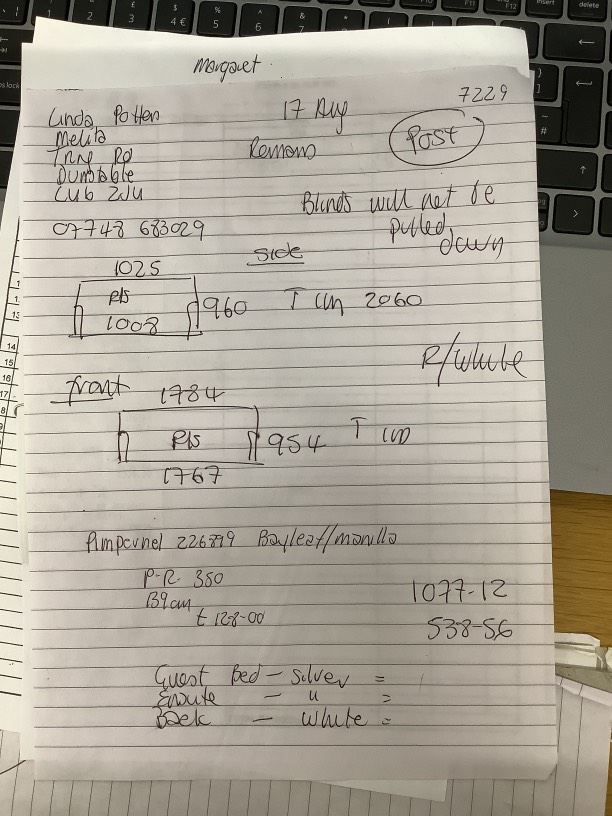 Margaret
7229
Linda Potten
17 Aug
Post
Melita
Tring Rd
Romans
Dunstable
LU6 2JU
Blinds will not be
pulled
down
07748 683029
side
1025
P/S
1008
960
2060
R/white
front
1784
P/S
954
1767
Pimpernel Bayleaf/manilla
P.R. 350
139cm
£ 128-00
1077-12
538-56
Guest Bed - silver =
Ensuite - " =
Back - white =